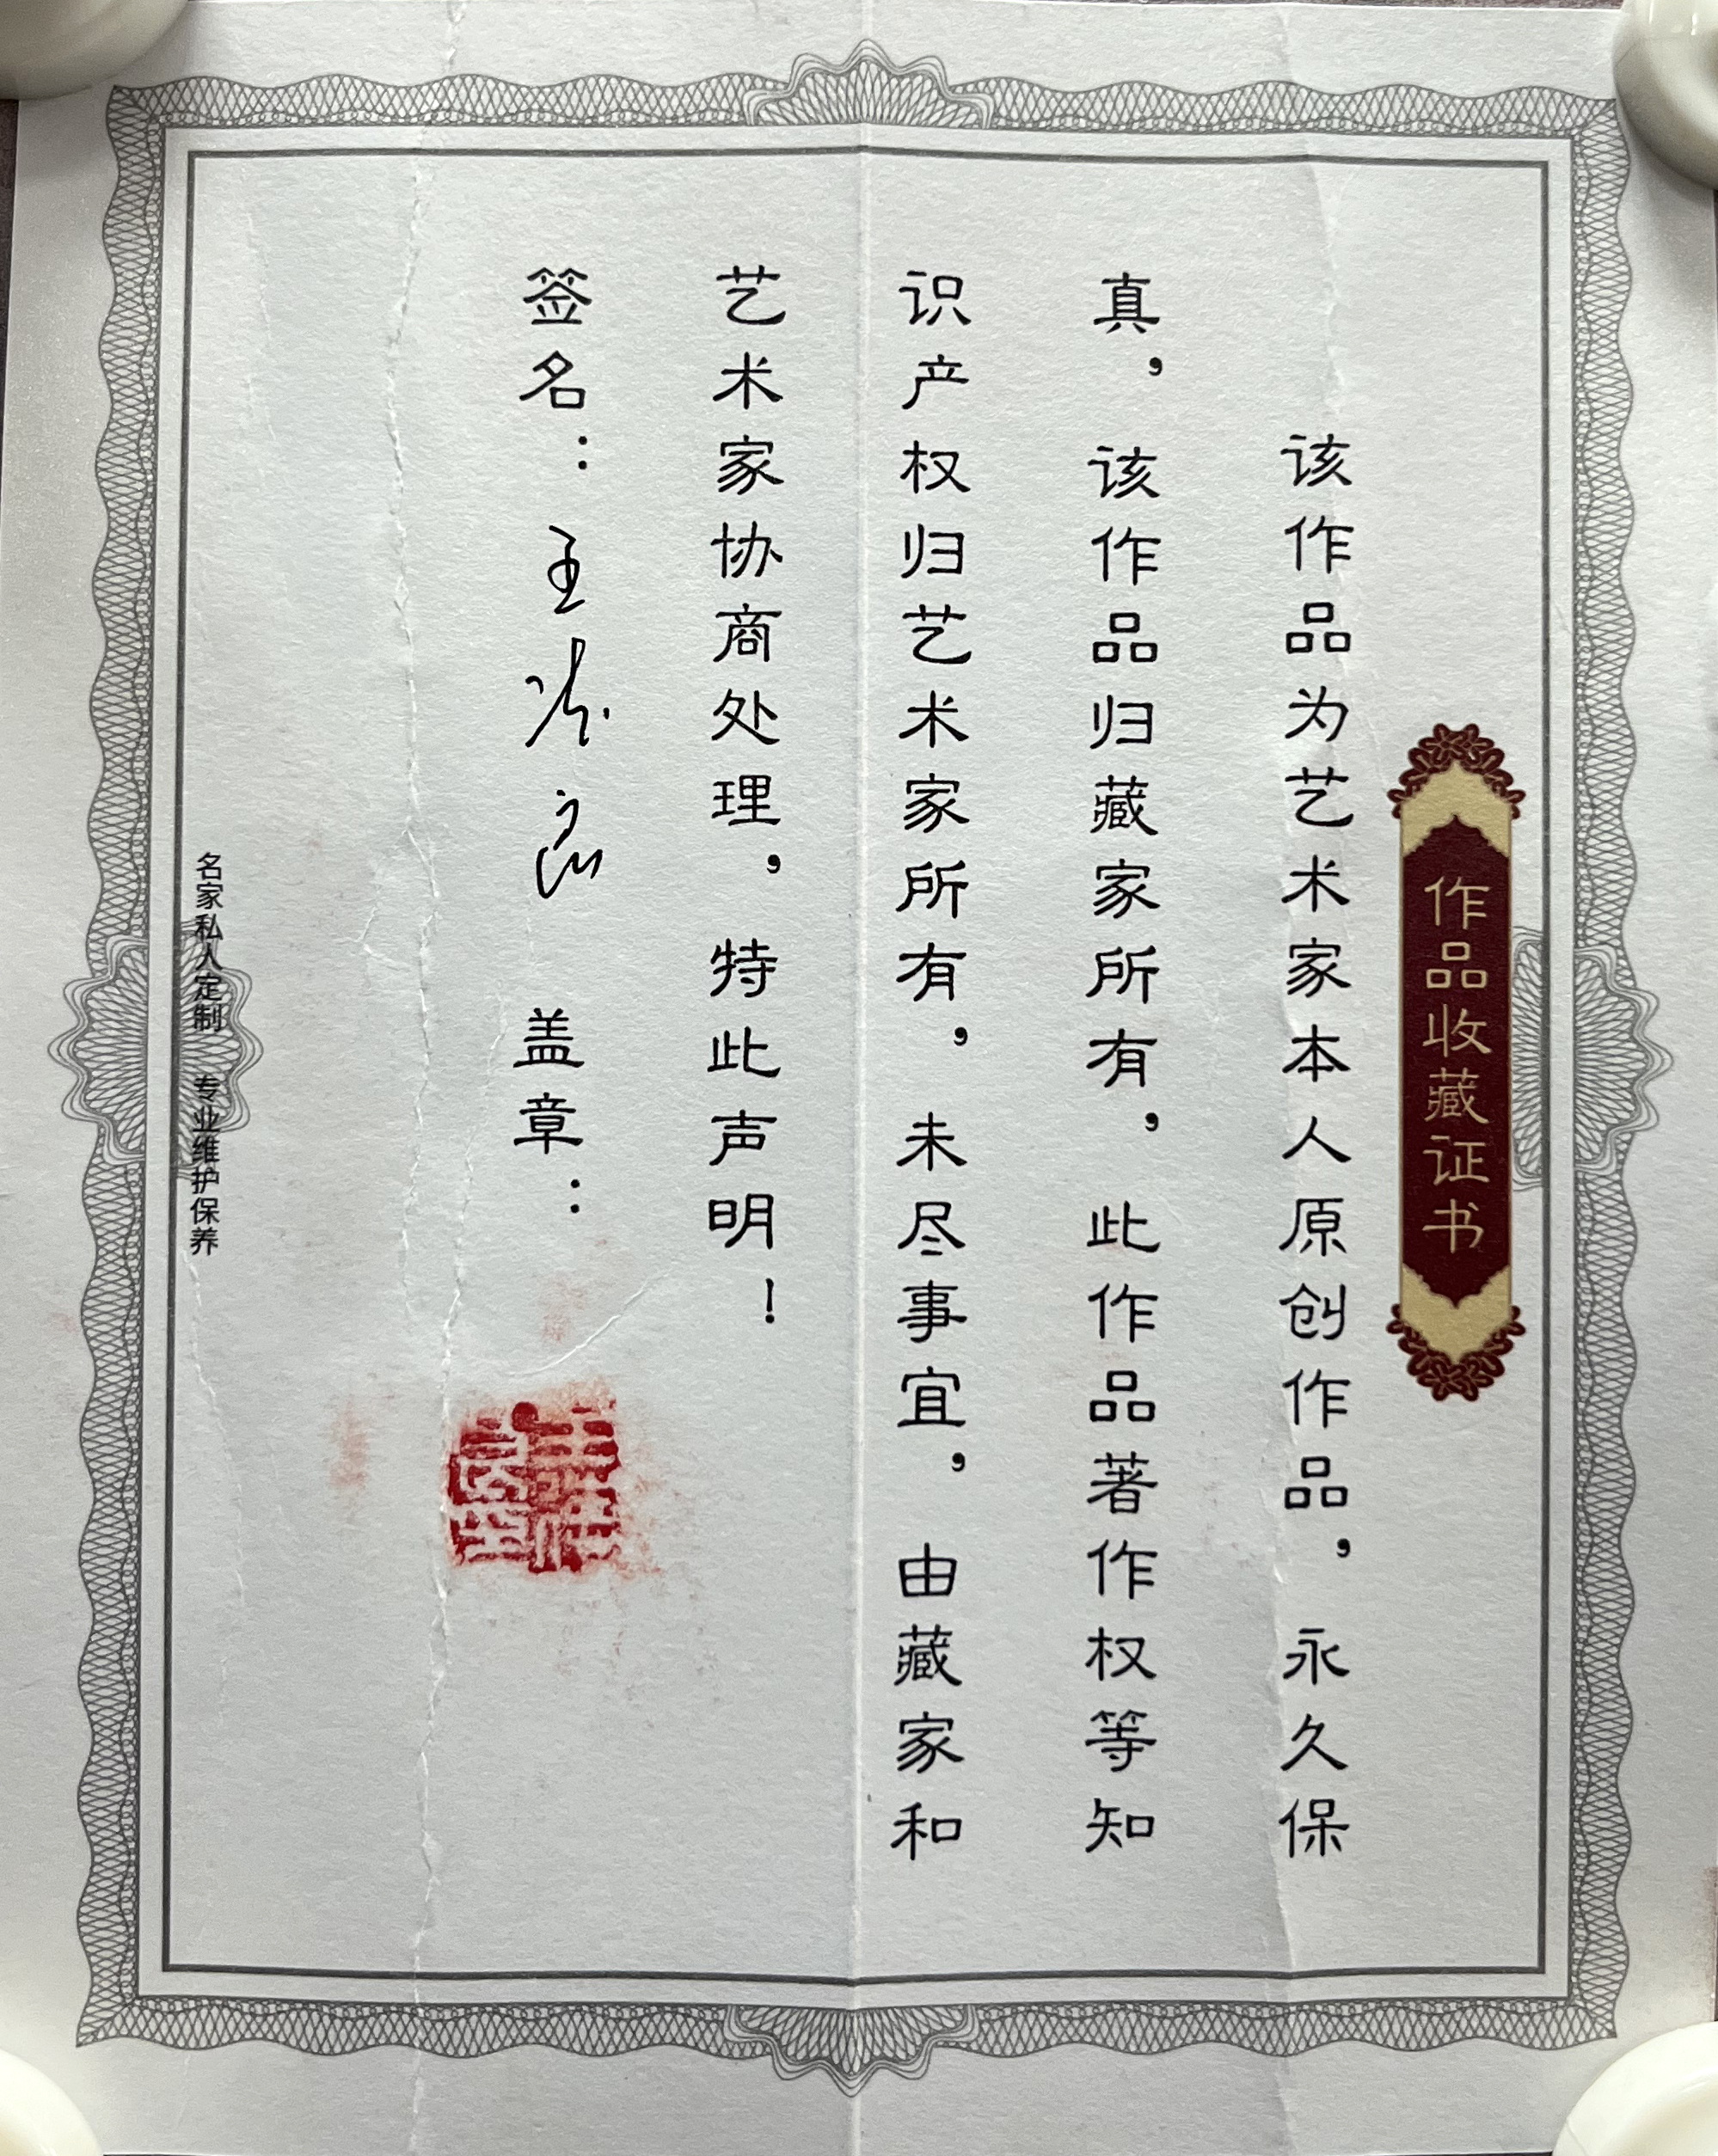 作品收藏证书
该作品为艺术家本人原创作品，永久保
真，该作品归藏家所有，此作品著作权等知
识产权归艺术家所有，未尽事宜，由藏家和
艺术家协商处理，特此声明！
签名：王 良 盖章：
名家私人定制 专业维护保养